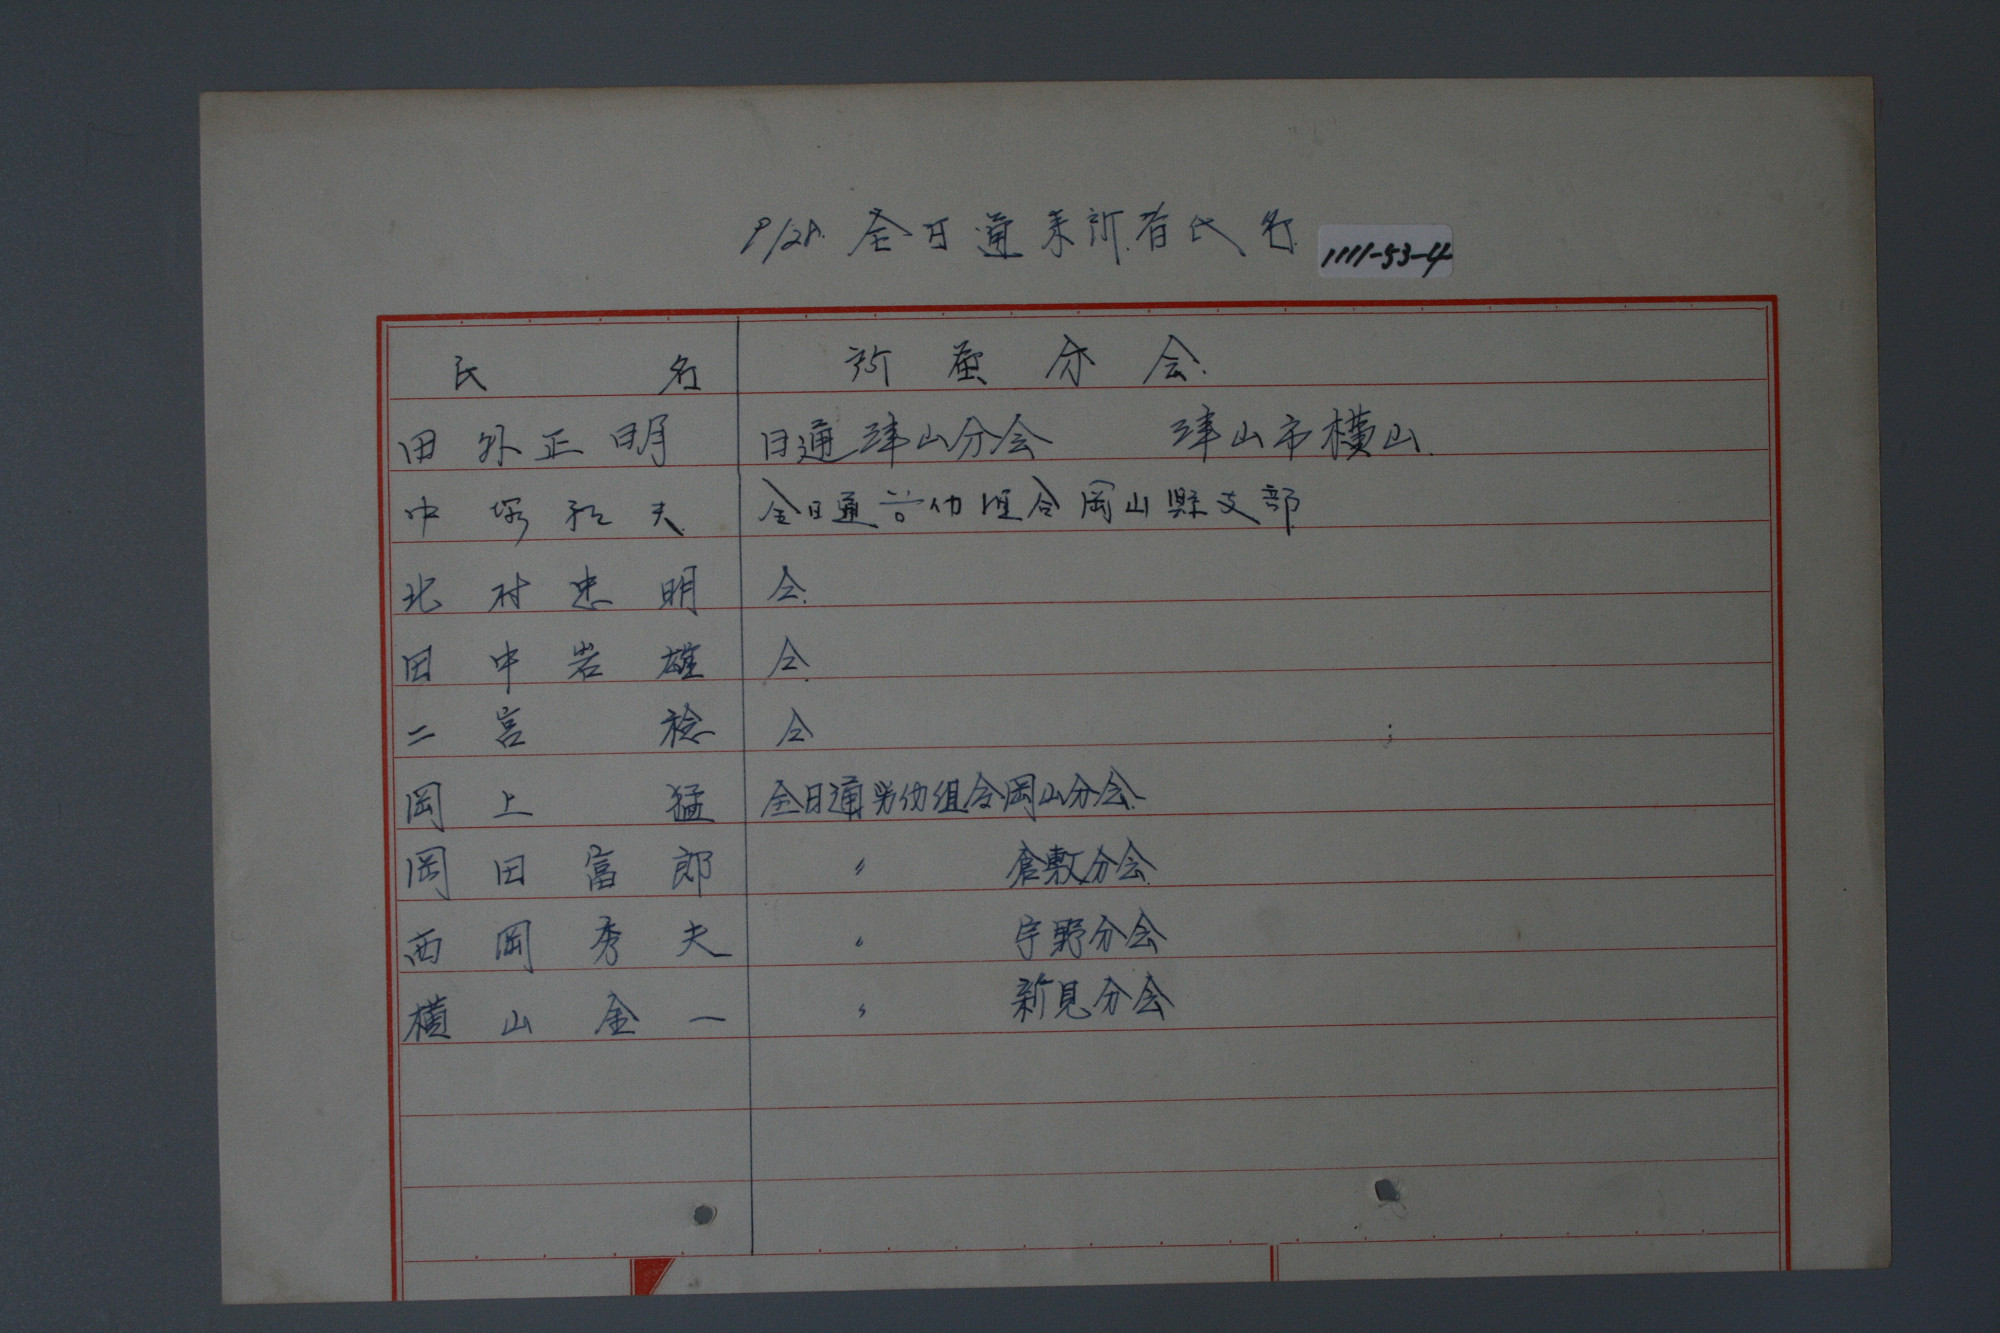 9/28. 全日通来所者氏名
1111-53-4
氏名 所属分会.
田外正明 日通津山分会 津山市横山.
中塚和夫 全日通労仂組合岡山縣支部
北村忠明 仝.
田中岩雄 仝.
二宮稔 仝
岡上猛 全日通労仂組合岡山分会.
岡田富郎 〃 倉敷分会.
西岡秀夫 〃 宇野分会
横山金一 〃 新見分会